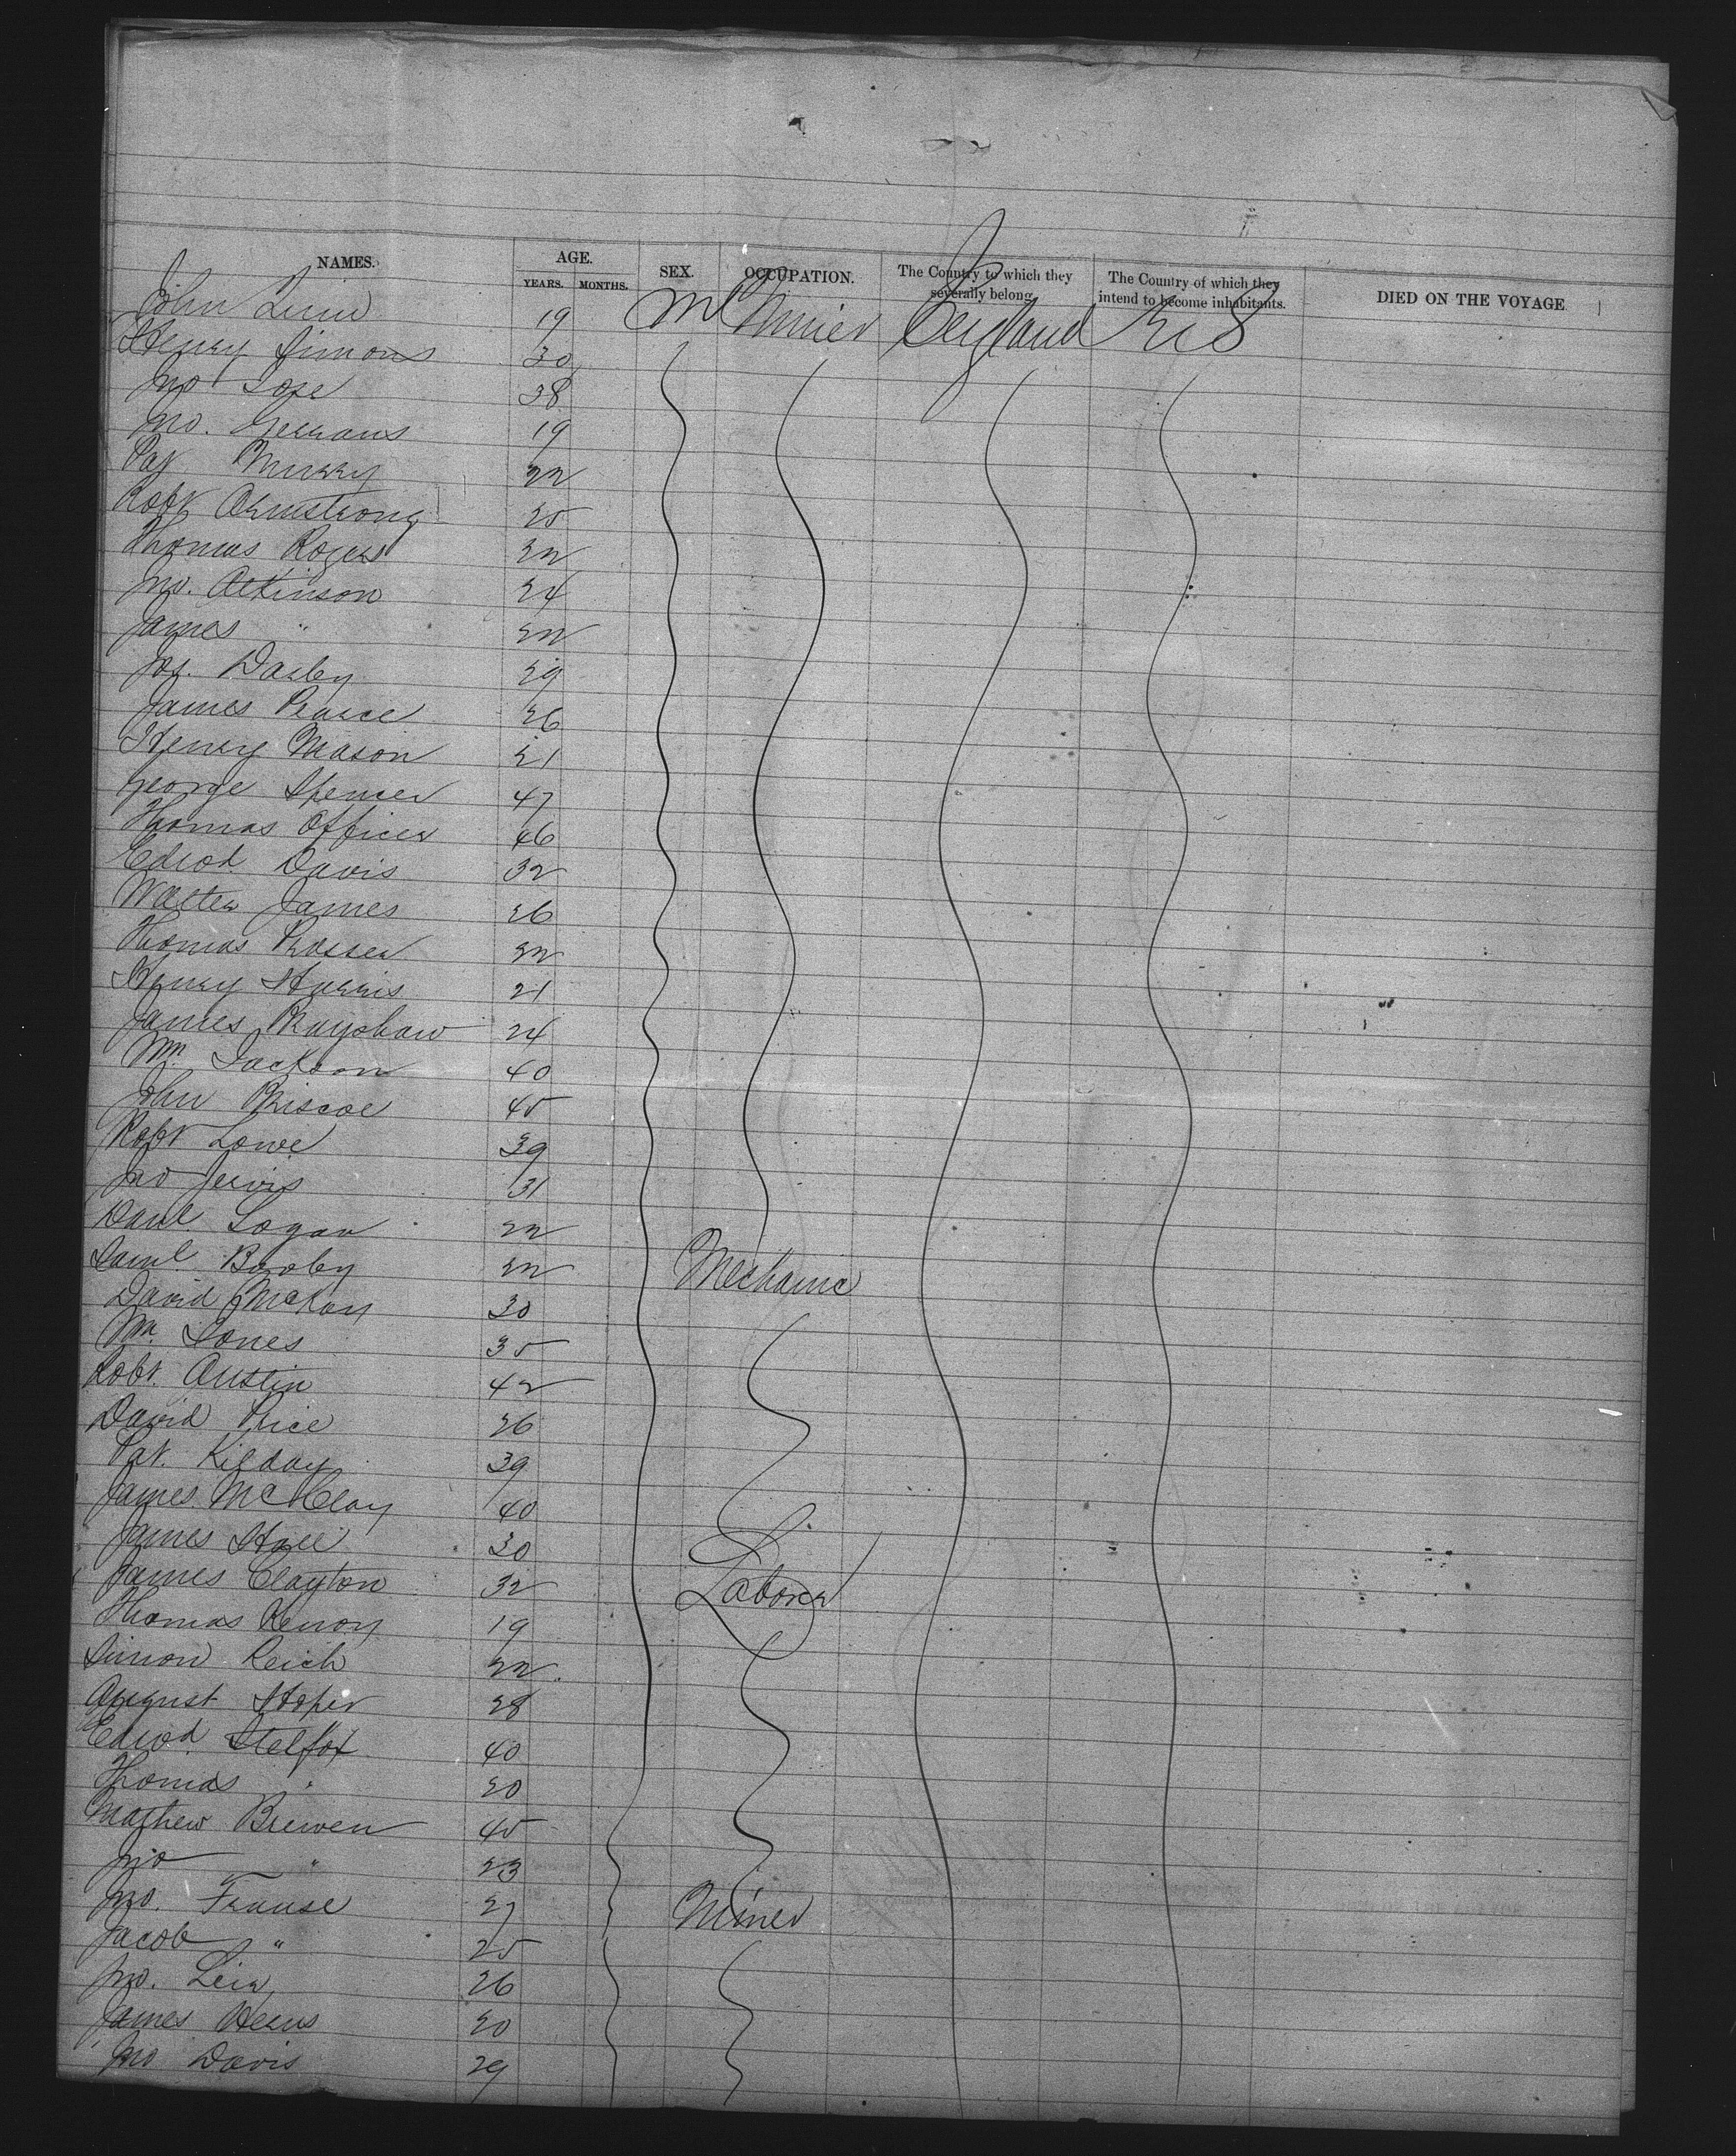 NAMES. AGE. SEX. OCCUPATION. The Country to which they severally belong. The Country of which they intend to become inhabitants. DIED ON THE VOYAGE
YEARS. MONTHS.
John 19 M Miner England U S
Henry Simons 30
Jno 38
Jno. Gerrans 19
Pat Murry 22
Robt Armstrong 25
Thomas Rogers 22
Jno. Atkinson 24
James " 22
Jos. Darby 29
James Pearce 26
Henry Mason 21
George Spencer 47
Thomas Officer 46
Edwd. Davis 32
Walter James 26
Thomas Prosser 22
Henry Harris 21
James 24
Wm Jackson 40
John Briscoe 45
Robt Lowe 39
Jno Jervis 31
Danl. Logan 22
Saml 22 Mechanic
David McKay 30
Wm. Jones 35
Robt. Austin 42
David Price 26
Pat. Kilday 39
James 40
James Hall 30
James Clayton 32 Laborer
Thomas 19
Simon Reich 22
August 28
Edwd. Stelfox 40
Thomas " 20
Mathew Brewen 45
Jno " 23
Jno. Frause 27 Miner
Jacob " 25
Jno. 26
James 20
Jno Davis 29